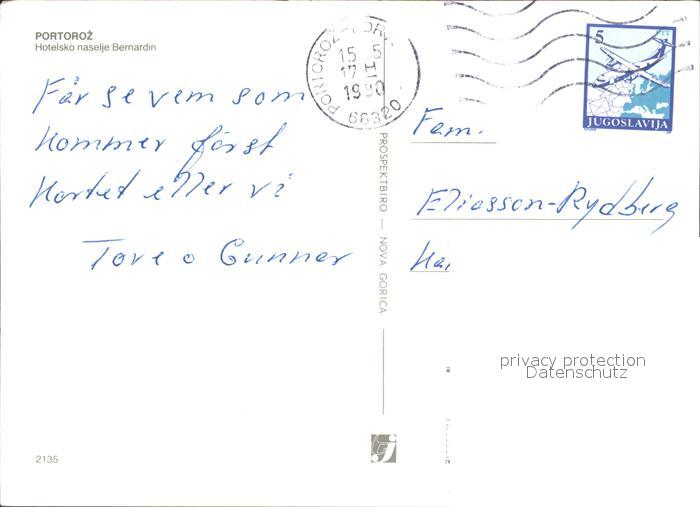 PORTOROŽ
Hotelsko naselje Bernardin
Får se vem som
kommer först
kortet eller vi
Tove o Gunnar
PORTOROŽ
15 5
17 H
1990
66320
5
JUGOSLAVIJA
Fam.
Eliasson-Rydberg
PROSPEKTBIRO — NOVA GORICA
privacy protection
Datenschutz
2135